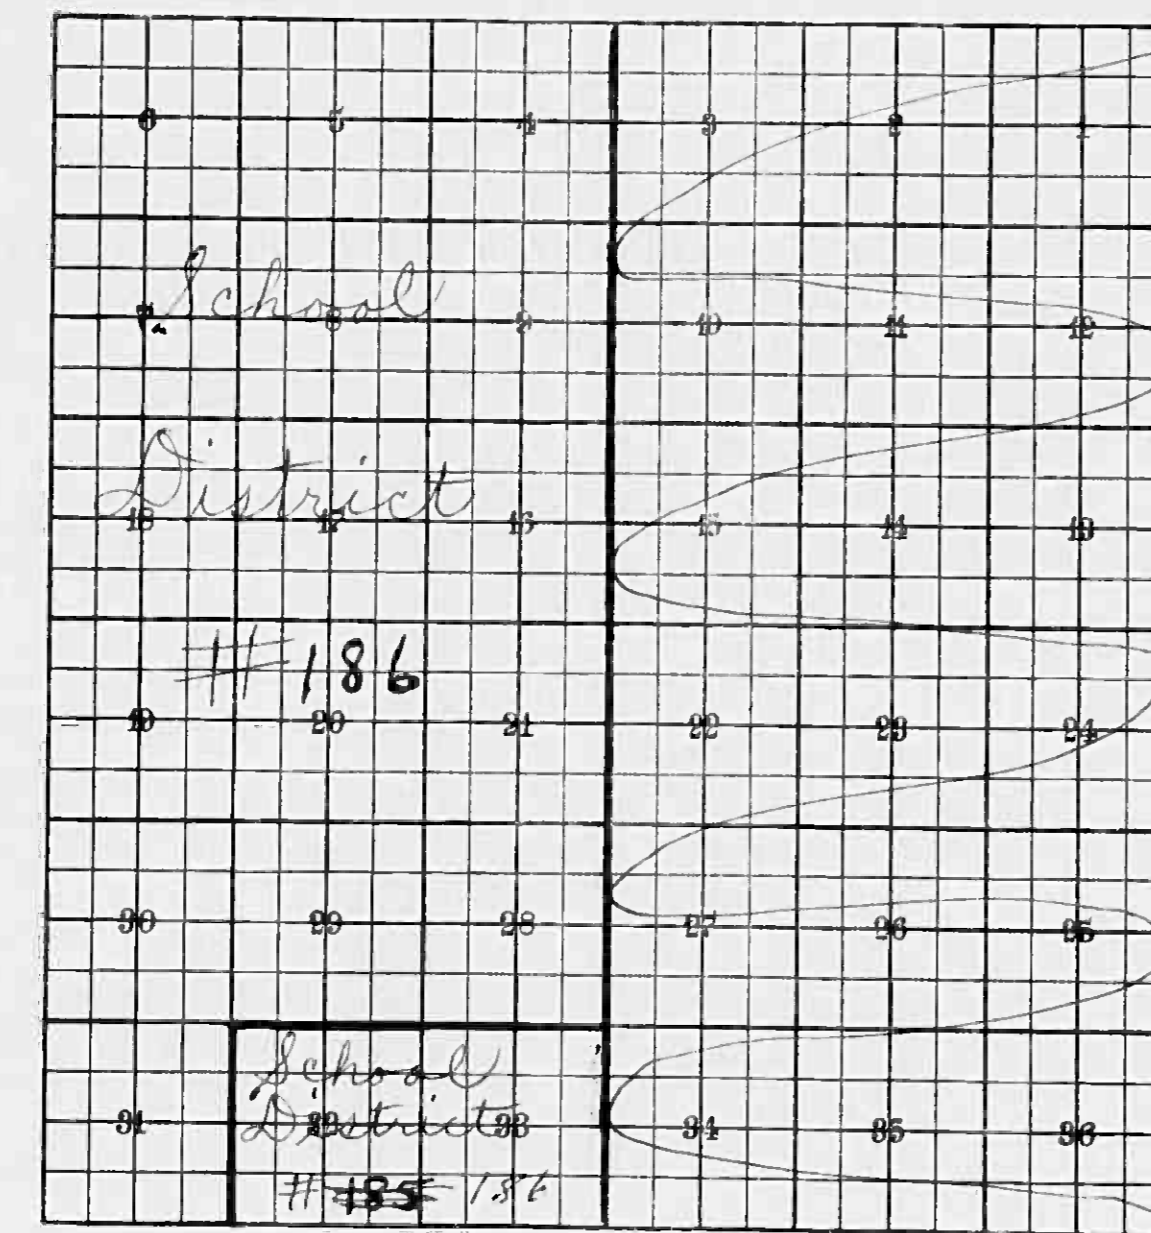 6 5 4 3 2 1
School
7 8 9 10 11 12
District
18 17 16 15 14 13
# 186
19 20 21 22 23 24
30 29 28 27 26 25
School
District
31 32 33 34 35 36
# 185 186